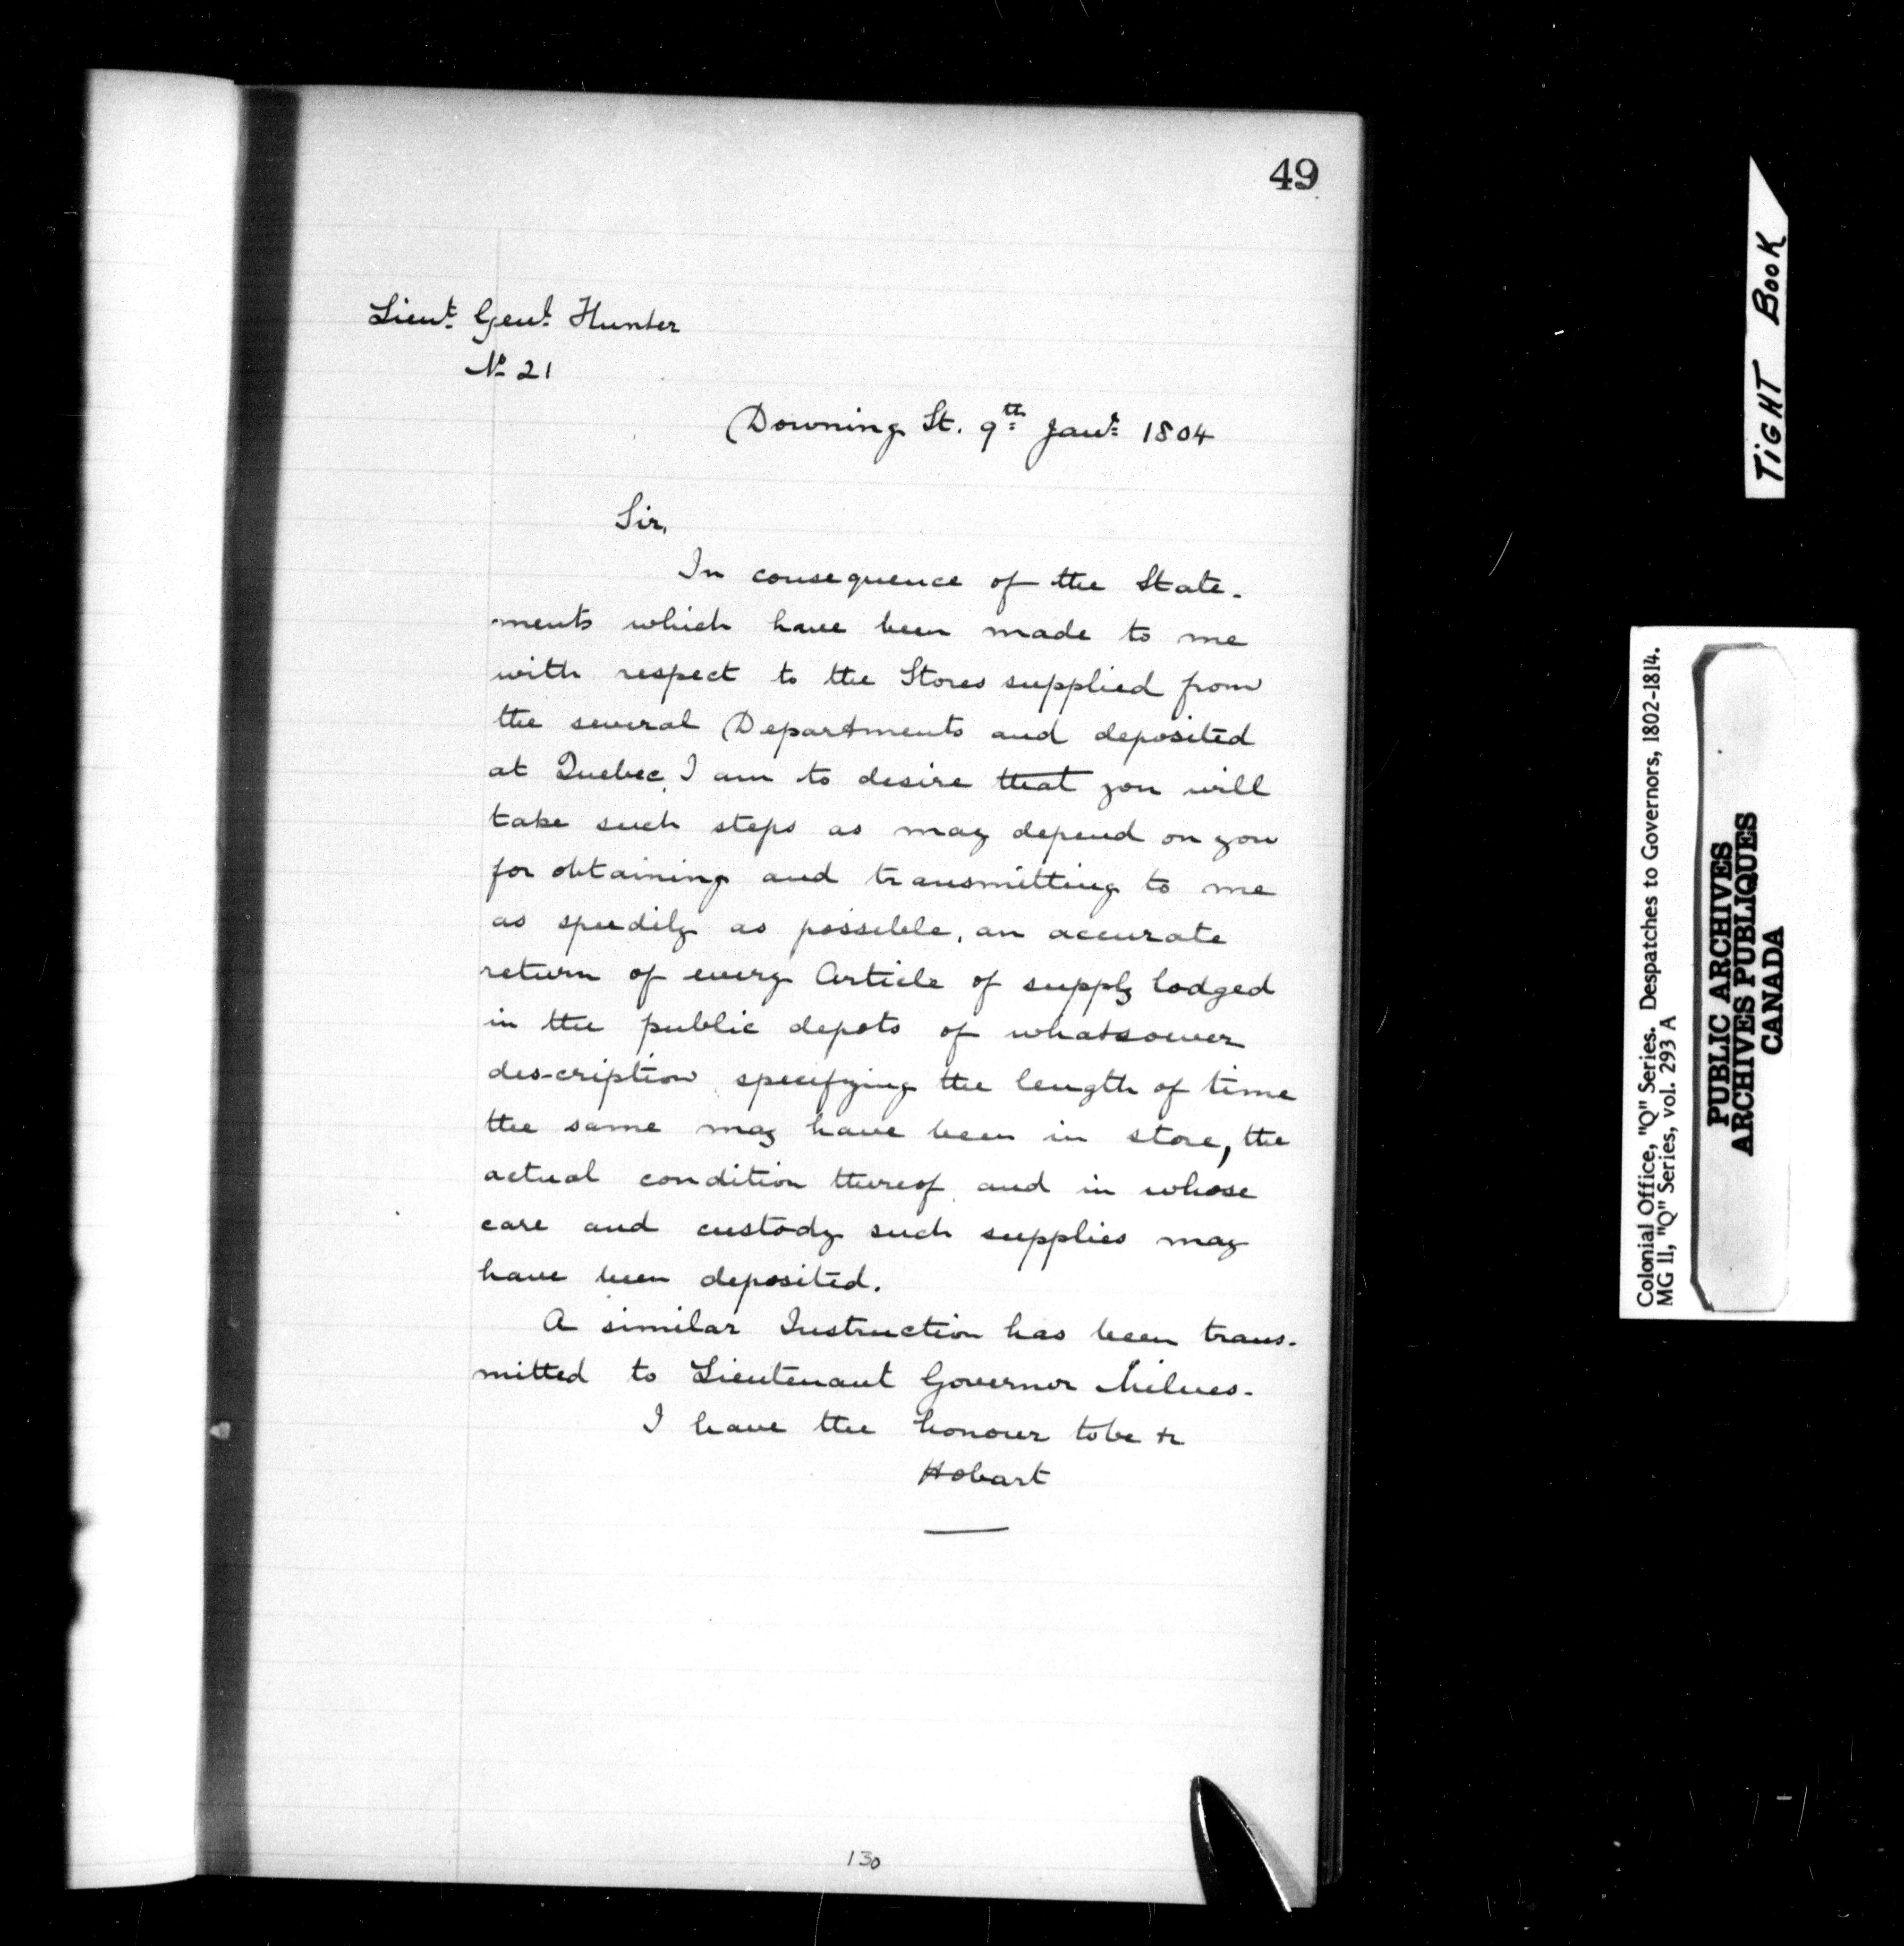 49
Lieut. Genl. Hunter
No 21
Downing St. 9th Janr. 1804
Sir,
In consequence of the State-
ments which have been made to me
with respect to the Stores supplied from
the several Departments and deposited
at Quebec, I am to desire that you will
take such steps as may depend on you
for obtaining and transmitting to me
as speedily as possible, an accurate
return of every Article of supply lodged
in the public depots of whatsoever
description, specifying the length of time
the same may have been in store, the
actual condition thereof, and in whose
care and custody such supplies may
have been deposited.
A similar Instruction has been trans-
mitted to Lieutenant Governor Milnes.
I have the honour to be &c
Hobart
130
TIGHT BOOK
Colonial Office, "Q" Series. Despatches to Governors, 1802-1814.
MG 11, "Q" Series, vol. 293 A
PUBLIC ARCHIVES
ARCHIVES PUBLIQUES
CANADA